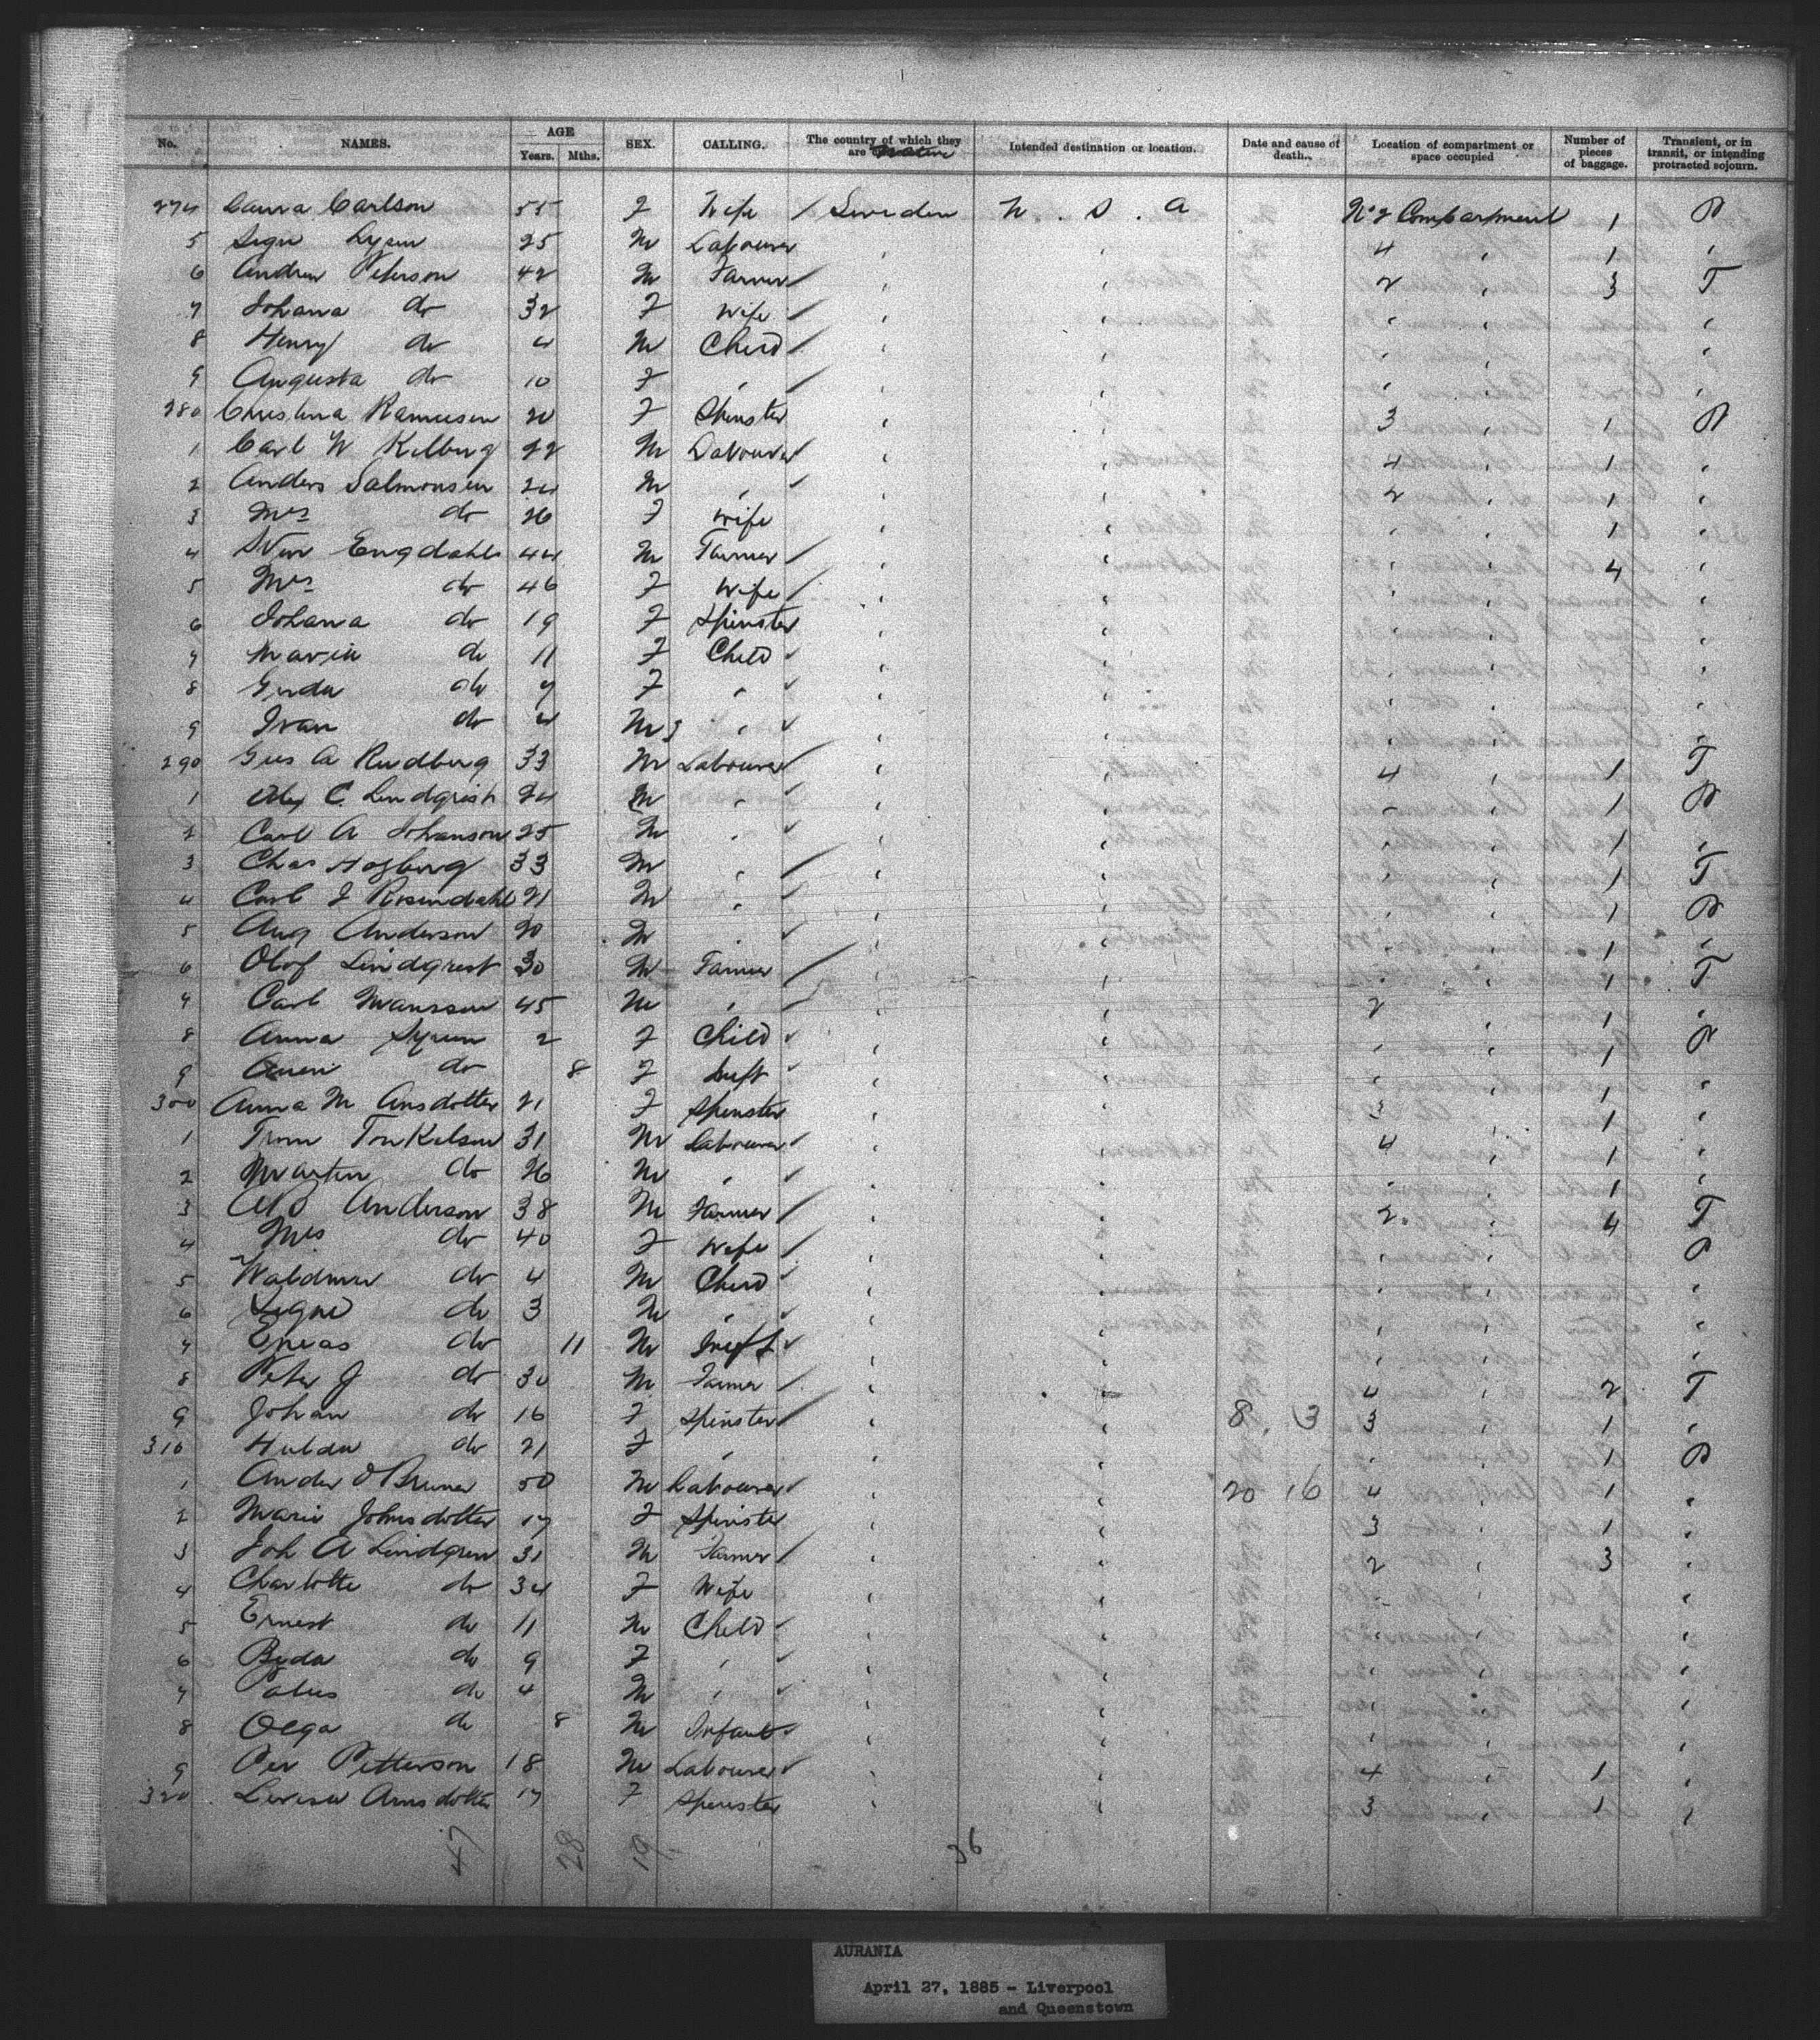 No. NAMES. AGE Years. Mths. SEX. CALLING. The country of which they are Intended destination or location. Date and cause of death. Location of compartment or space occupied Number of pieces of baggage. Transient, or in transit, or intending protracted sojourn.
274 Carlson 55 F Wife / Sweden U. S. A No 2 Compartment 1 P
5 25 M Labourer 4 1
6 Andrew Peterson 42 M Farmer 2 3 T
7 Johana do 32 F Wife
8 Henry do 4 M Child
9 Augusta do 10 F
280 Christina 20 F Spinster 3 1 P
1 Carl W Kilberg 22 M Labourer 4 1
2 Anders Salmonsen 24 M 2 1
3 Mrs do 26 F Wife 1
4 Sven Engdahl 44 M Farmer 4
5 Mrs do 46 F Wife
6 Johana do 19 F Spinster
7 Maria do 11 F Child
8 Gerda do 7 F
9 Ivan do 4 M
290 Gus A Rudberg 33 M Labourer 4 1 T
1 Alex C. Lindqrist 24 M 1 P
2 Carl A Johanson 25 M 1
3 Chas Hogberg 33 M 1 T
4 Carl J Rosendahl 21 M 1 P
5 Aug Anderson 20 M 1
6 Olof Lindqrest 30 M Farmer 1 T
7 Carl Mansson 45 M 2 1
8 Anna 2 F Child 1 P
9 do 8 F Inft 1
300 Anna M Ansdotter 21 F Spinster 3 1
1 Torkelson 31 M Labourer 4 1
2 Martin do 26 M 1
3 Anderson 38 M Farmer 2 4 T
4 Mrs do 40 F Wife P
5 Waldmar do 4 M Child
6 Signe do 3 M
7 Eneas do 11 M Inft
8 Peter J do 30 M Farmer 4 2 T
9 Johan do 16 F Spinster 8. 13 3 1
310 Hulda do 21 F 1 P
1 Ander 50 M Labourer 20 16 4 1
2 Marie Johnsdotter 17 F Spinster 3 1
3 Joh A Lindgren 31 M Farmer 2 3
4 Charlotte do 34 F Wife
5 Ernest do 11 M Child
6 do 9 F
7 do 4 M
8 Olga do 8 M Infant
9 Per Petterson 18 M Labourer 4 1
320 Arnsdotter 17 F Spinster 3 1
47 28 19 36
AURANIA
April 27, 1885 - Liverpool
and Queenstown